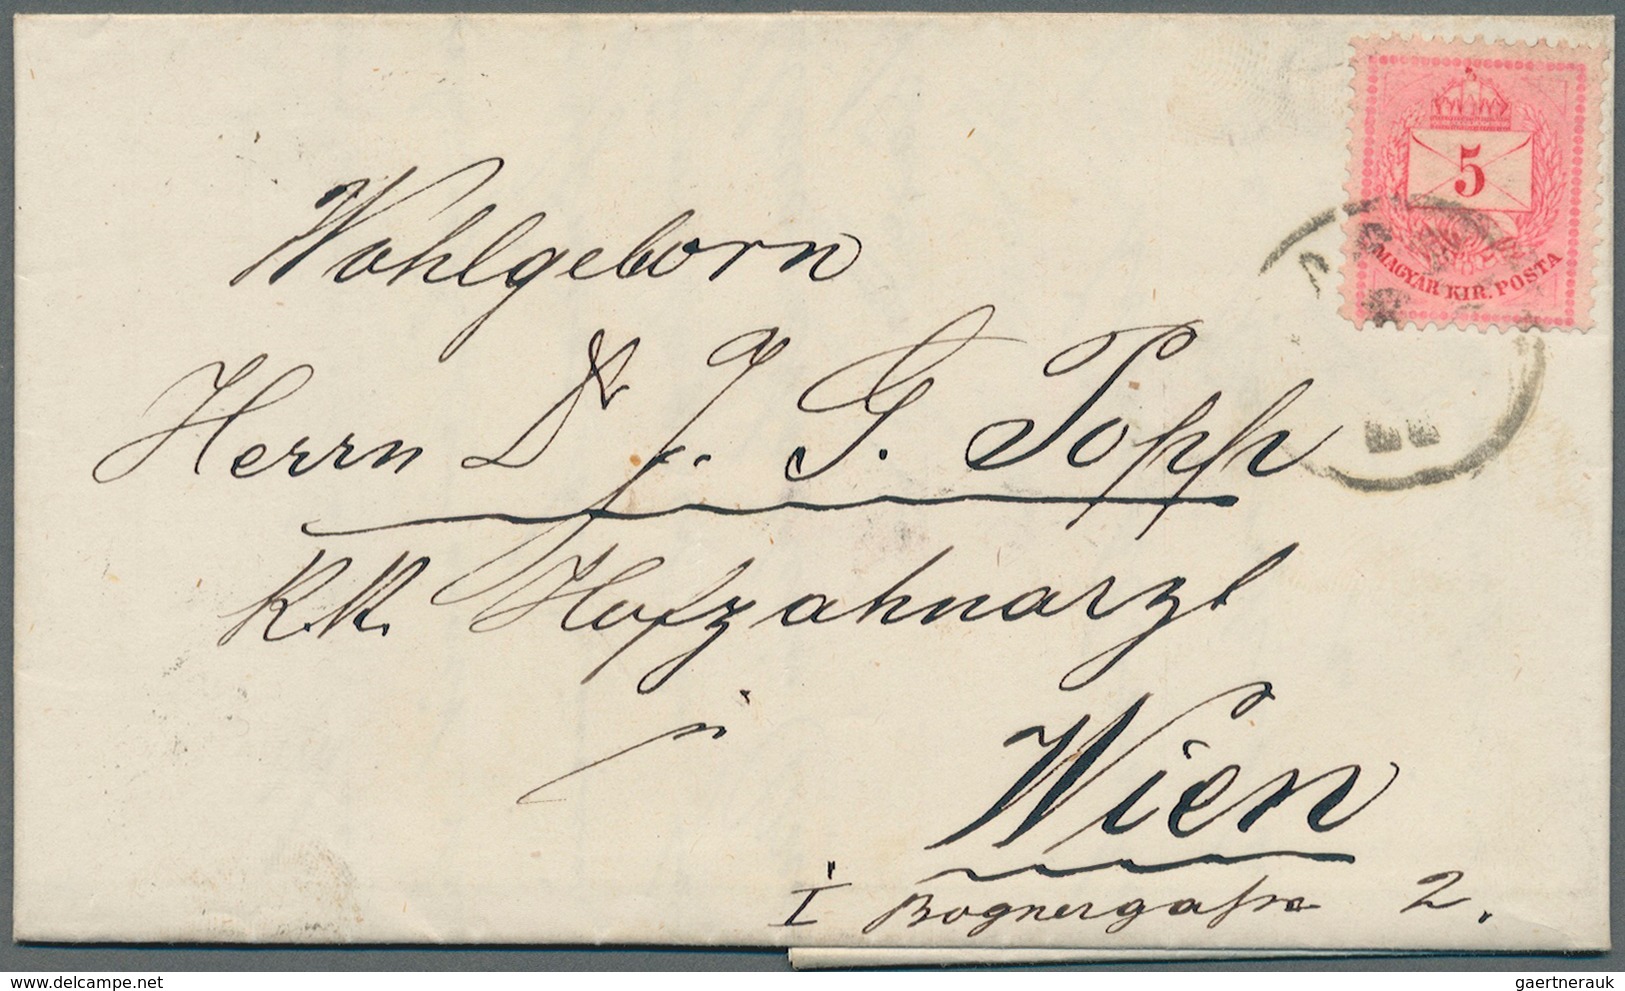 5
MAGYAR KIR. POSTA
Wohlgeborn
Herrn Dr J. G. Popp
K.K. Hofzahnarzt
in
Wien
I Bognergasse 2.
delcampe.net
gaertnerauk